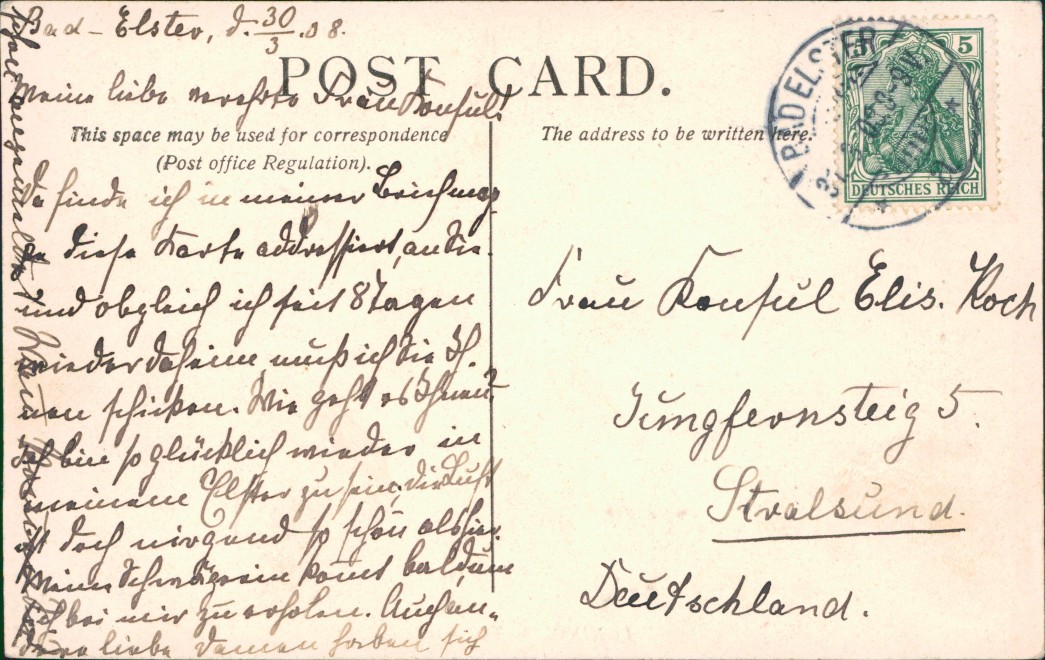 Bad-Elster, d. 30/3.08.
POST CARD.
Meine liebe verehrte Frau Konsul!
This space may be used for correspondence
(Post office Regulation).
The address to be written here.
BAD ELSTER
5 5
DEUTSCHES REICH
Da finde ich in meiner
diese Karte addressiert, an Sie.
und obgleich ich seit 8 Tagen
wieder daheim, muß ich Sie Ih-
nen schicken. Wie geht es Ihnen?
Ich bin so glücklich wieder in
meinem Elster zu sein, die Luft
ist doch nirgend so schön als hier.
Meine Schwägerin kommt bald, um
sich bei mir zu erholen. Auch an-
dere liebe Damen haben sich
schon angemeldet.
Frau Konsul Elis. Koch
Jungfernsteig 5.
Stralsund.
Deutschland.